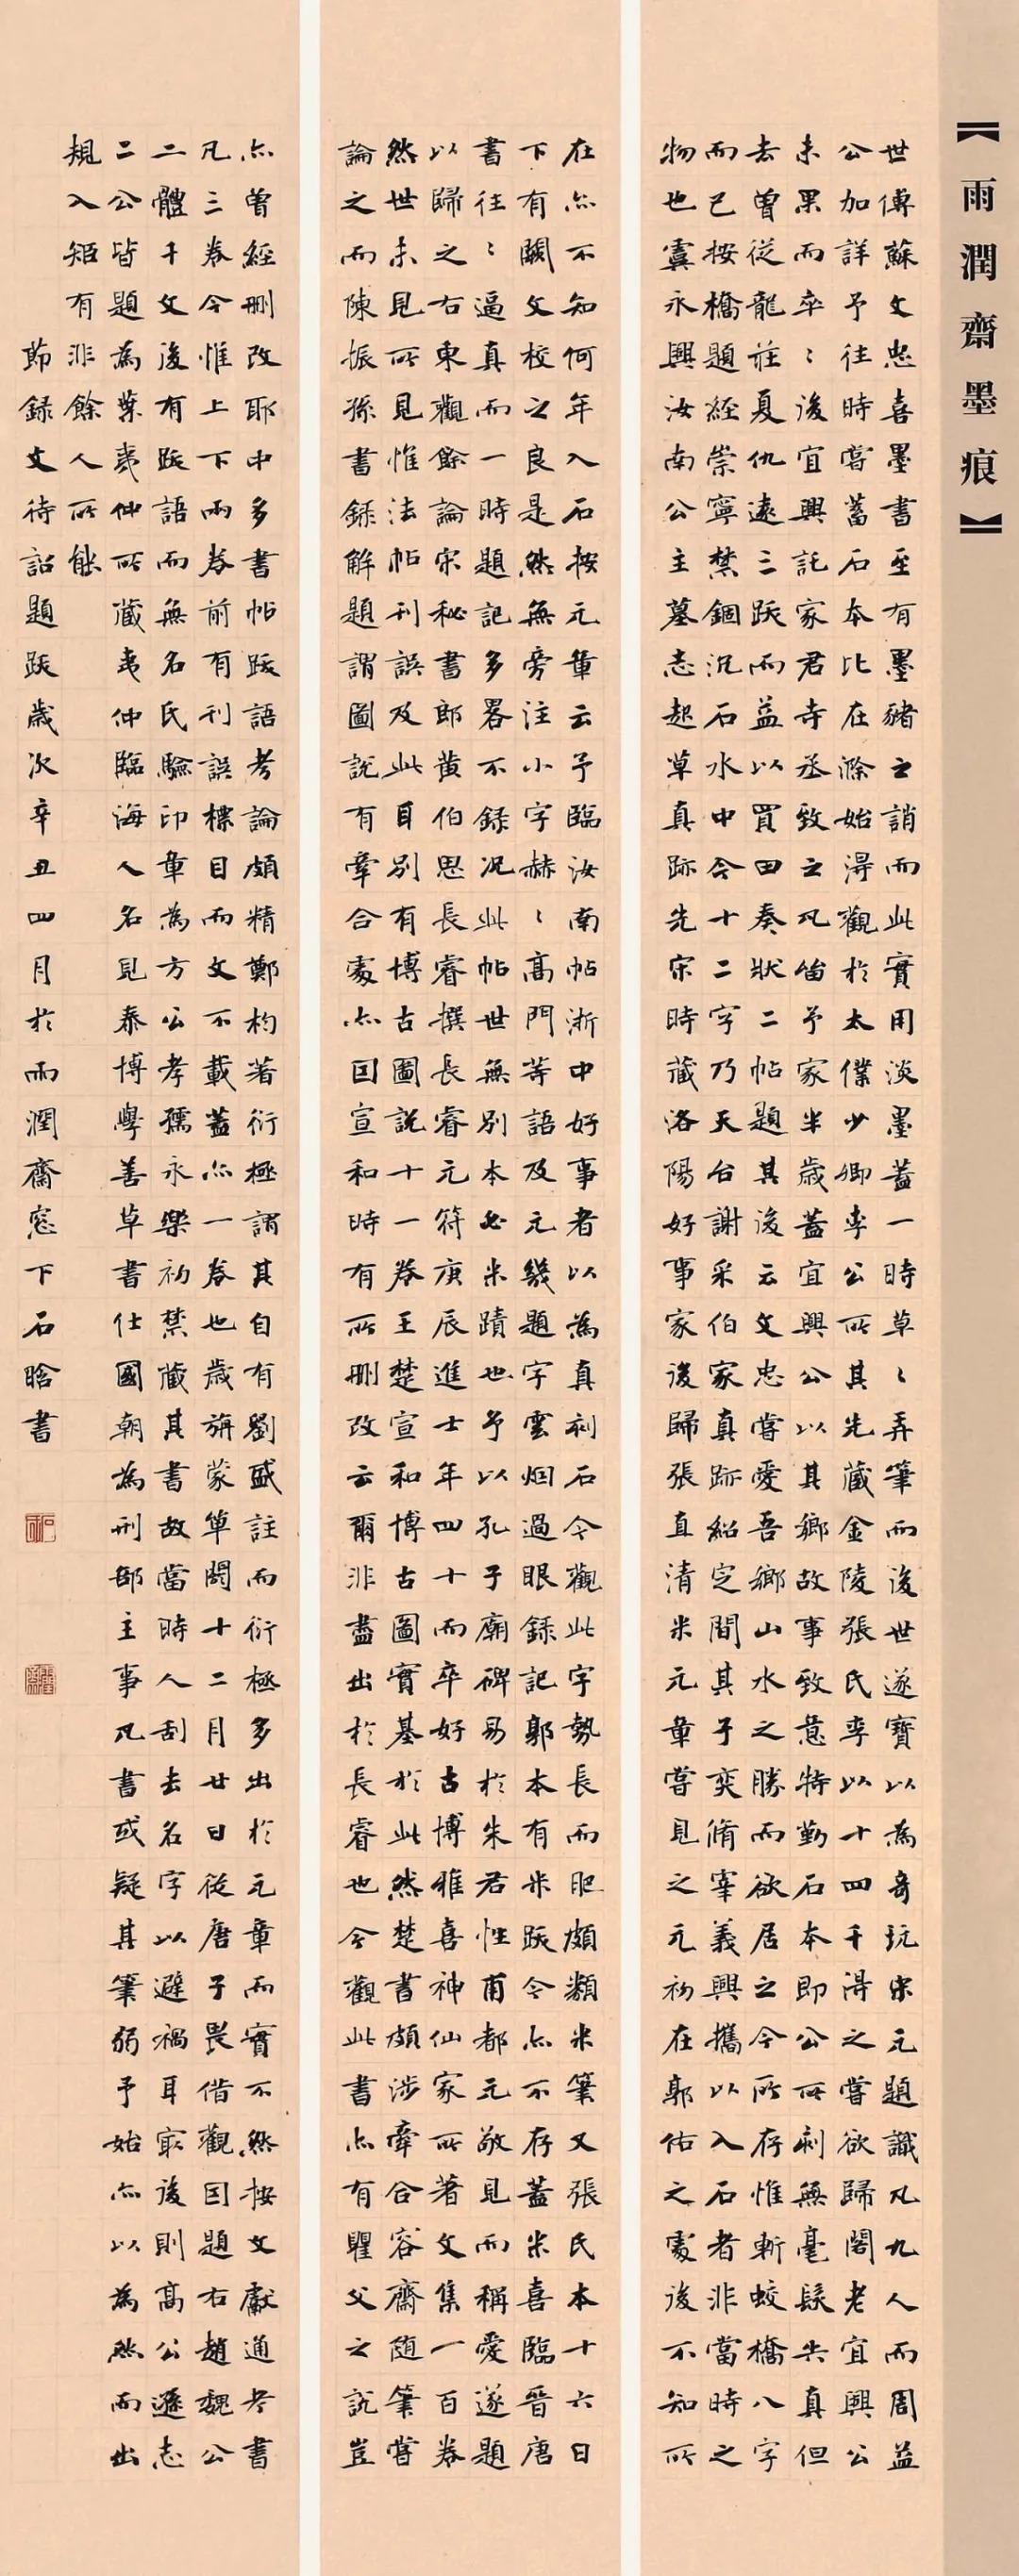 【雨潤齋墨痕】
世傅蘇文忠喜墨書至有墨豬之誚而此實用淡墨蓋一時草〻弄筆而後世遂寶以為奇玩宋元題識凡九人而周益
公加詳予往時嘗蓄石本比在滁始得觀於太僕少卿李公所其先藏金陵張氏李以十四千得之嘗欲歸閣老宜興公
未果而卒〻後宜興託家君寺丞致之凡留予家半歲蓋宜興公以其鄉故事致意特勤石本即公所刻無毫髮失真但
去曾從龍莊夏仇遠三跋而益以買田奏狀二帖題其後云文忠嘗愛吾鄉山水之勝而欲居之今所存惟斬蛟橋八字
而已按橋題經崇寧禁錮沉石水中今十二字乃天台謝采伯家真跡紹定間其子奕脩宰義興攜以入石者非當時之
物也虞永興汝南公主墓志起草真跡先宋時藏洛陽好事家後歸張直清米元章嘗見之元初在郭佑之處後不知所
在亦不知何年入石按元章云予臨汝南帖浙中好事者以為真刻石今觀此字勢長而肥頗類米筆又張氏本十六日
下有闕文校之良是然無旁注小字赫〻高門等語及元幾題字雲烟過眼錄記郭本有米跋今亦不存蓋米喜臨晉唐
書往〻逼真而一時題記多畧不錄況此帖世無別本必米蹟也予以孔子廟碑易於朱君性甫都元敬見而稱愛遂題
以歸之右東觀餘論宋秘書郎黃伯思長睿撰長睿元符庚辰進士年四十而卒好古博雅喜神仙家所著文集一百卷
然世未見所見惟法帖刊誤及此耳別有博古圖說十一卷王楚宣和博古圖實基於此然楚書頗涉牽合容齋随筆嘗
論之而陳振孫書錄解題謂圖說有牽合處亦因宣和時有所刪改云爾非盡出於長睿也今觀此書亦有瞿父之說豈
亦曾經刪改耶中多書帖跋語考論頗精鄭杓著衍極謂其自有劉盛註而衍極多出於元章而實不然按文獻通考書
凡三卷今惟上下兩卷前有刊誤標目而文不載蓋亦一卷也歲旃蒙單閼十二月廿日從唐子畏借觀因題右趙魏公
二體千文後有跋語而無名氏驗印章為方公孝孺永樂初禁藏其書故當時人刮去名字以避禍耳最後則高公遜志
二公皆題為葉夷仲所藏夷仲臨海人名見泰博學善草書仕國朝為刑部主事凡書或疑其筆弱予始亦以為然而出
規入矩有非餘人所能
節録文待詔題跋歲次辛丑四月於雨潤齋窗下石晗書